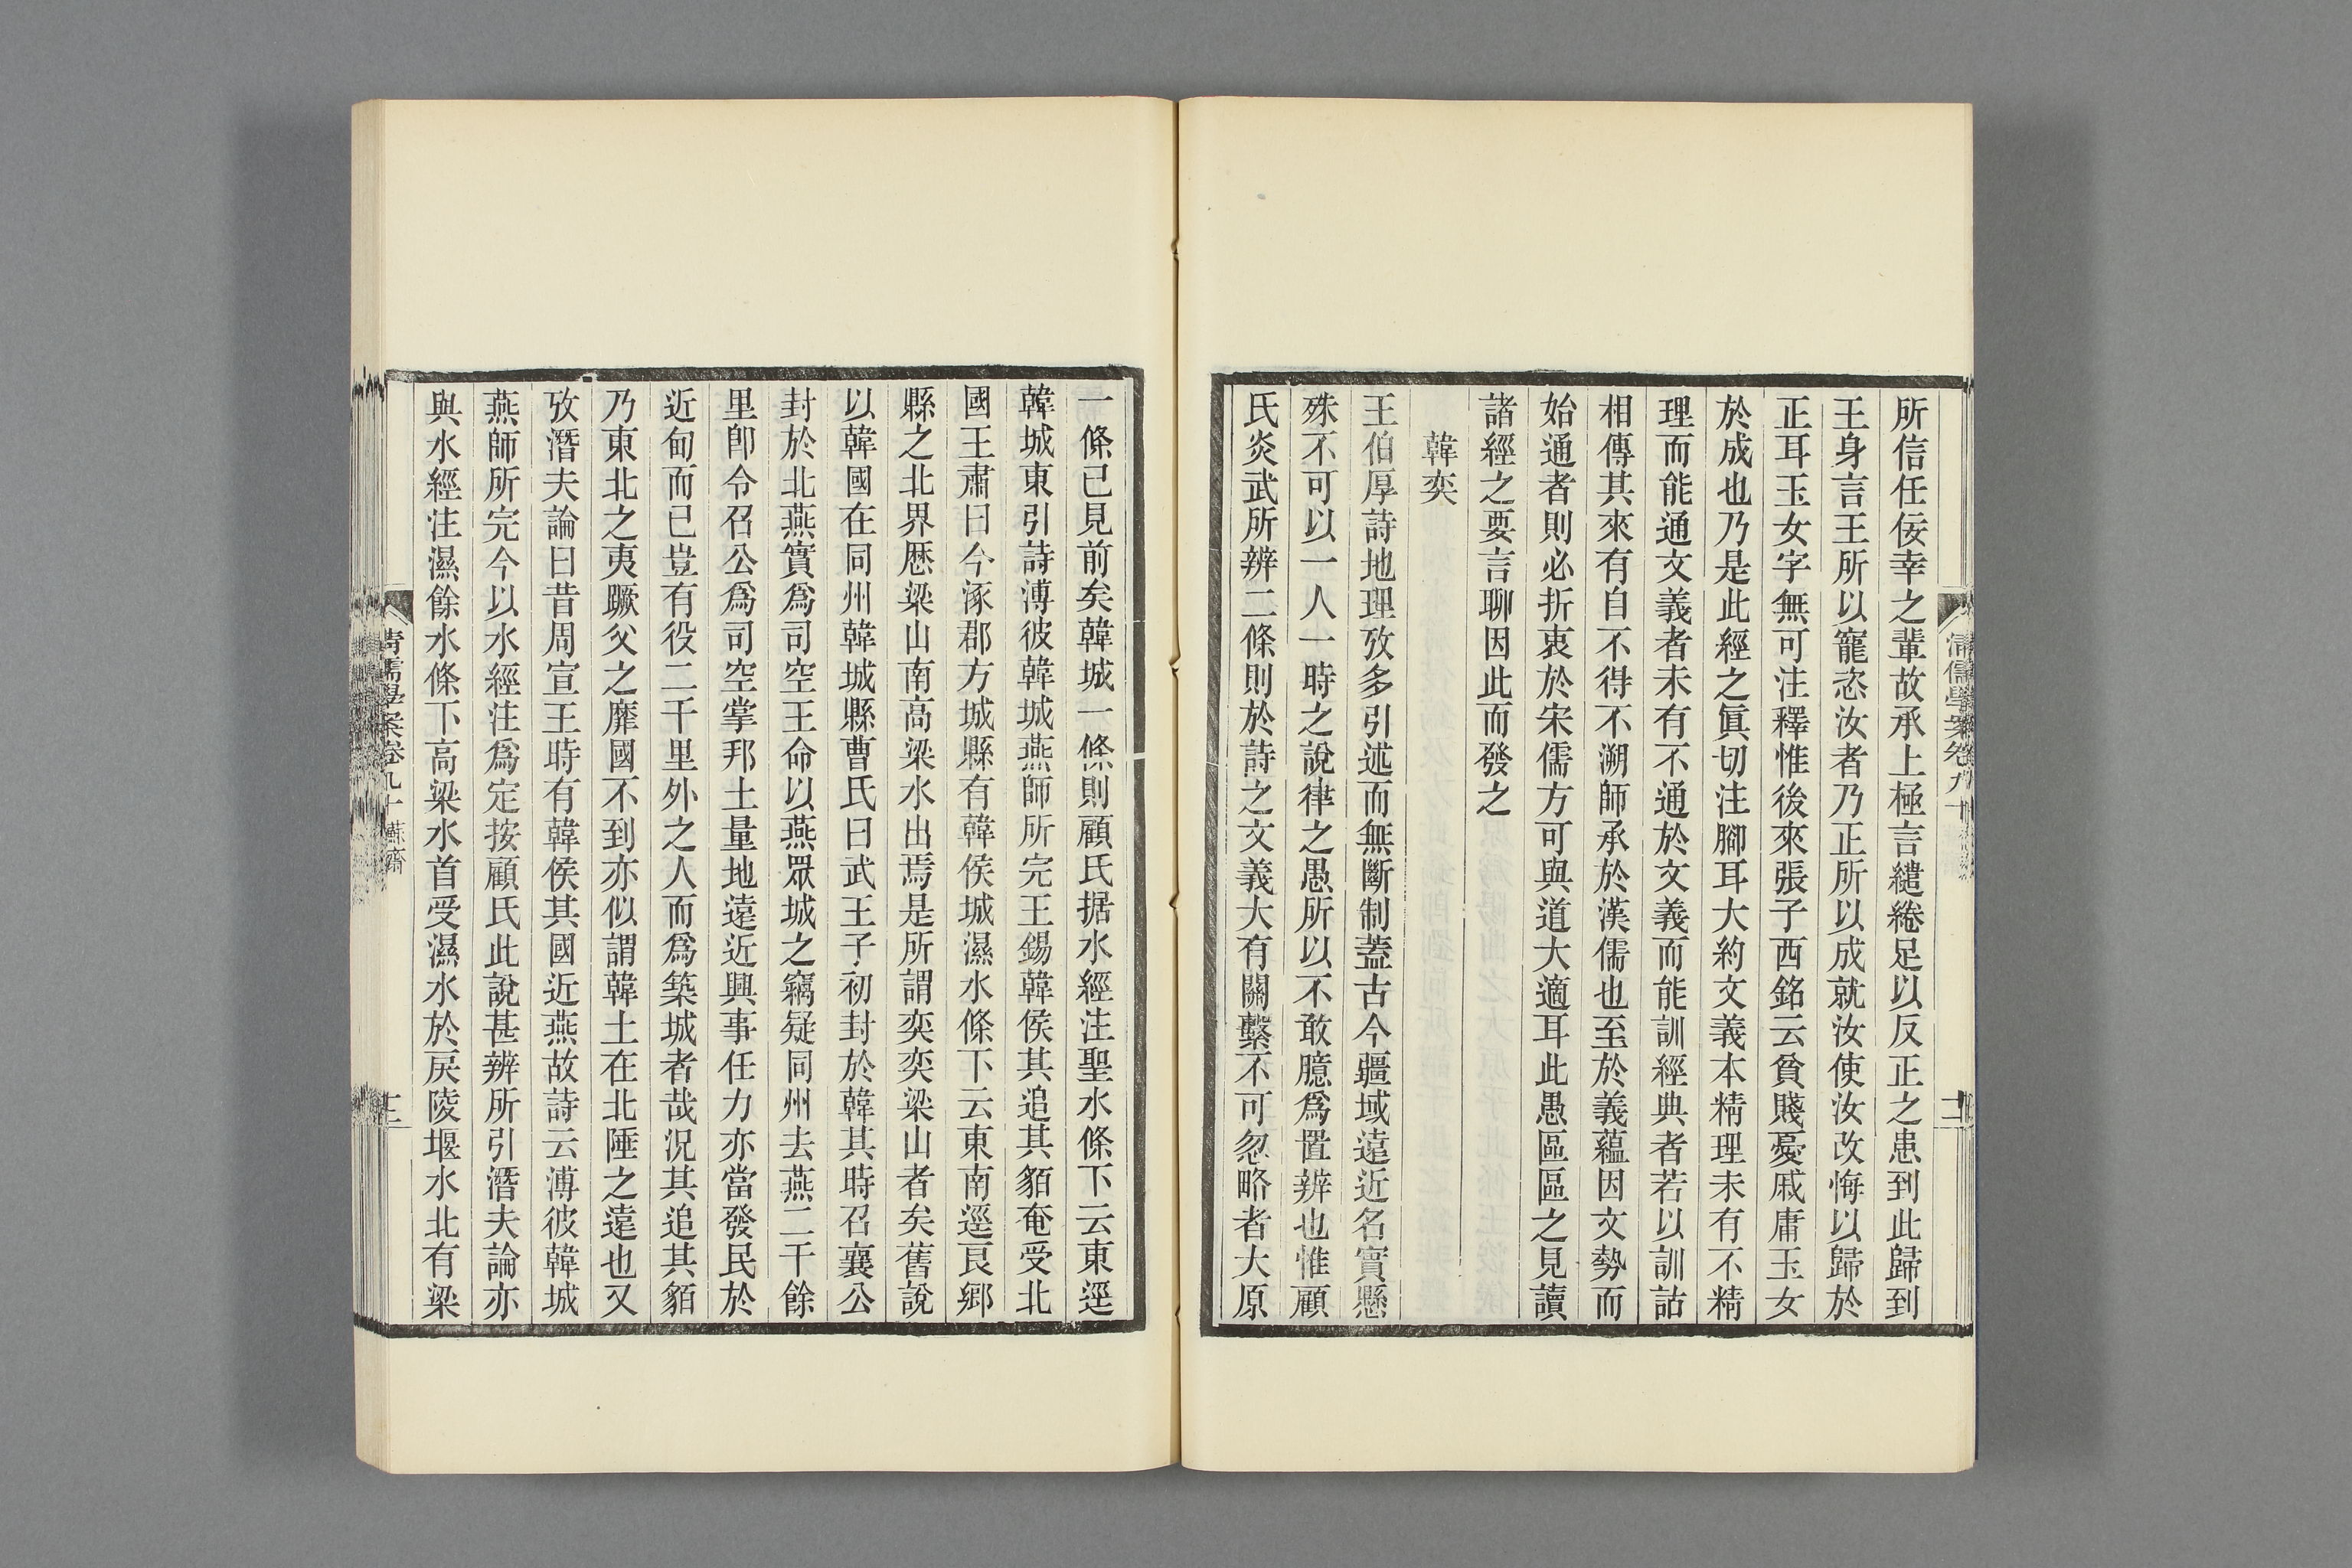 所信任佞幸之輩故承上極言繾綣足以反正之患到此歸到
王身言王所以寵恣汝者乃正所以成就汝使汝改悔以歸於
正耳玉女字無可注釋惟後來張子西銘云貧賤憂戚庸玉女
於成也乃是此經之眞切注腳耳大約文義本精理未有不精
理而能通文義者未有不通於文義而能訓經典者若以訓詁
相傳其來有自不得不溯師承於漢儒也至於義蘊因文勢而
始通者則必折衷於宋儒方可與道大適耳此愚區區之見讀
諸經之要言聊因此而發之
韓奕
王伯厚詩地理攷多引述而無斷制蓋古今疆域遠近名實懸
殊不可以一人一時之說律之愚所以不敢臆爲置辨也惟顧
氏炎武所辨二條則於詩之文義大有關繫不可忽略者大原
清儒學案卷九十
十二
一條已見前矣韓城一條則顧氏据水經注聖水條下云東逕
韓城東引詩溥彼韓城燕師所完王錫韓侯其追其貊奄受北
國王肅曰今涿郡方城縣有韓侯城濕水條下云東南逕良鄉
縣之北界歷梁山南高梁水出焉是所謂奕奕梁山者矣舊說
以韓國在同州韓城縣曹氏曰武王子初封於韓其時召襄公
封於北燕實爲司空王命以燕眾城之竊疑同州去燕二千餘
里卽令召公爲司空掌邦土量地遠近興事任力亦當發民於
近甸而已豈有役二千里外之人而爲築城者哉況其追其貊
乃東北之夷蹶父之靡國不到亦似謂韓土在北陲之遠也又
攷潛夫論曰昔周宣王時有韓侯其國近燕故詩云溥彼韓城
燕師所完今以水經注爲定按顧氏此說甚辨所引潛夫論亦
與水經注濕餘水條下高梁水首受濕水於戾陵堰水北有梁
清儒學案卷九十 蘇齋
十三